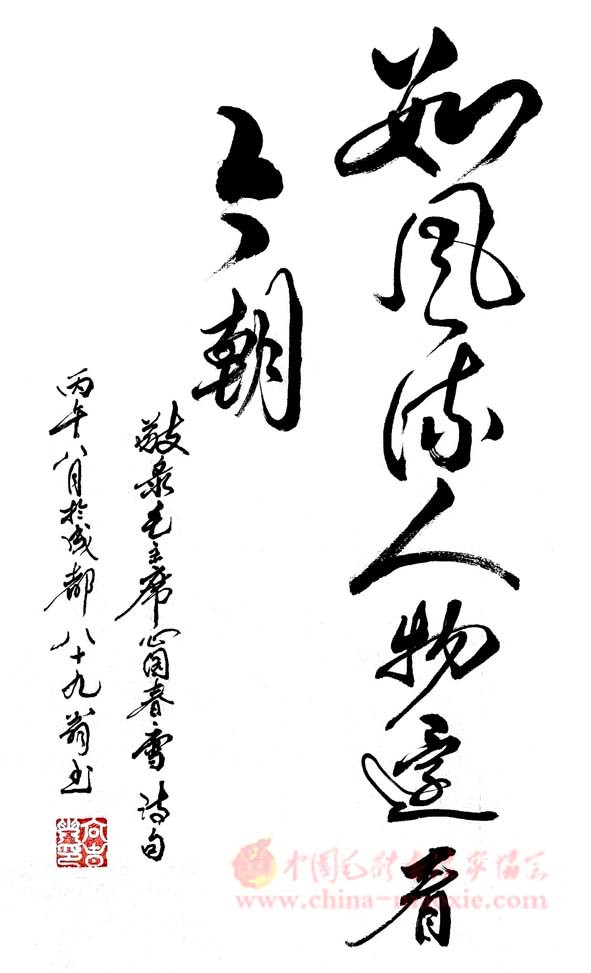 数風流人物還看
今朝
敬录毛主席沁园春雪诗句
丙午八月於成都八十九翁书
中国毛体书法家协会
www.china-maoxie.com